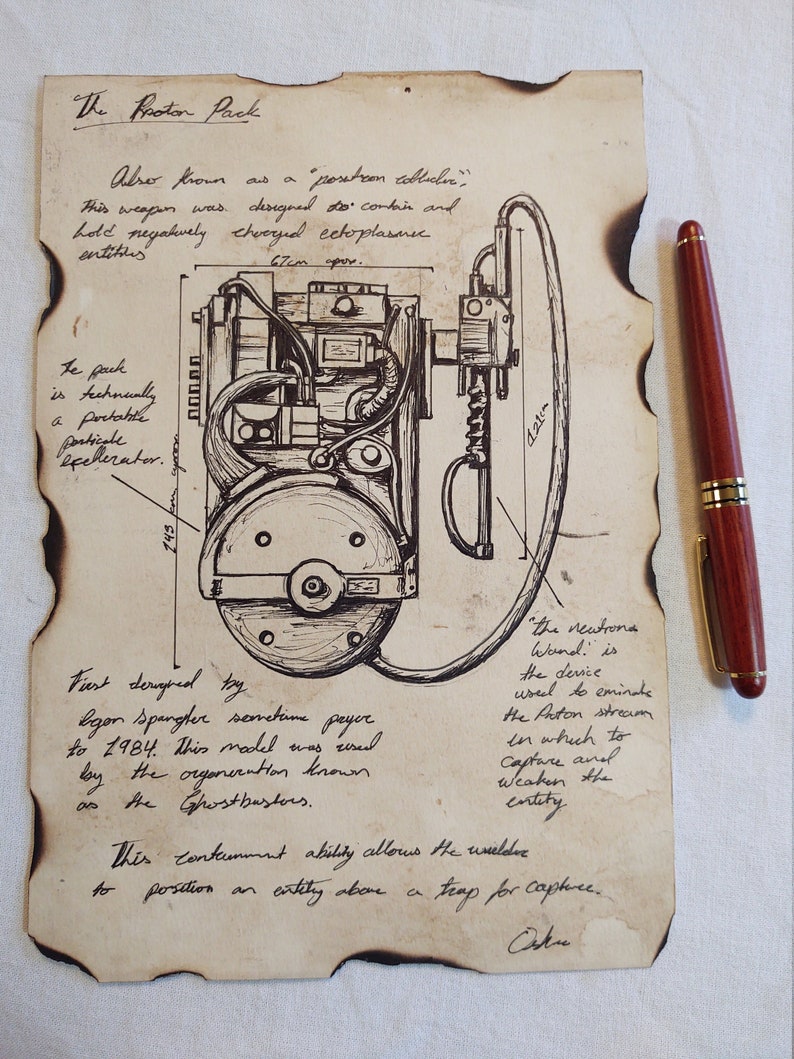 The Proton Pack
Also known as a "positron collider",
This weapon was designed to contain and
hold negatively charged ectoplasmic
entities
67cm aprox.
The pack
is technically
a portable
particale
excellerator.
143 cm aprox
121cm
"the neutrona
Wand." is
the device
used to eminate
the Proton stream
in which to
capture and
weaken the
entity
First designed by
Egon Spangler sometime pryer
to 1984. This model was used
by the organeration known
as the Ghostbusters.
This containment ability allows the wielder
to position an entity above a trap for capture.